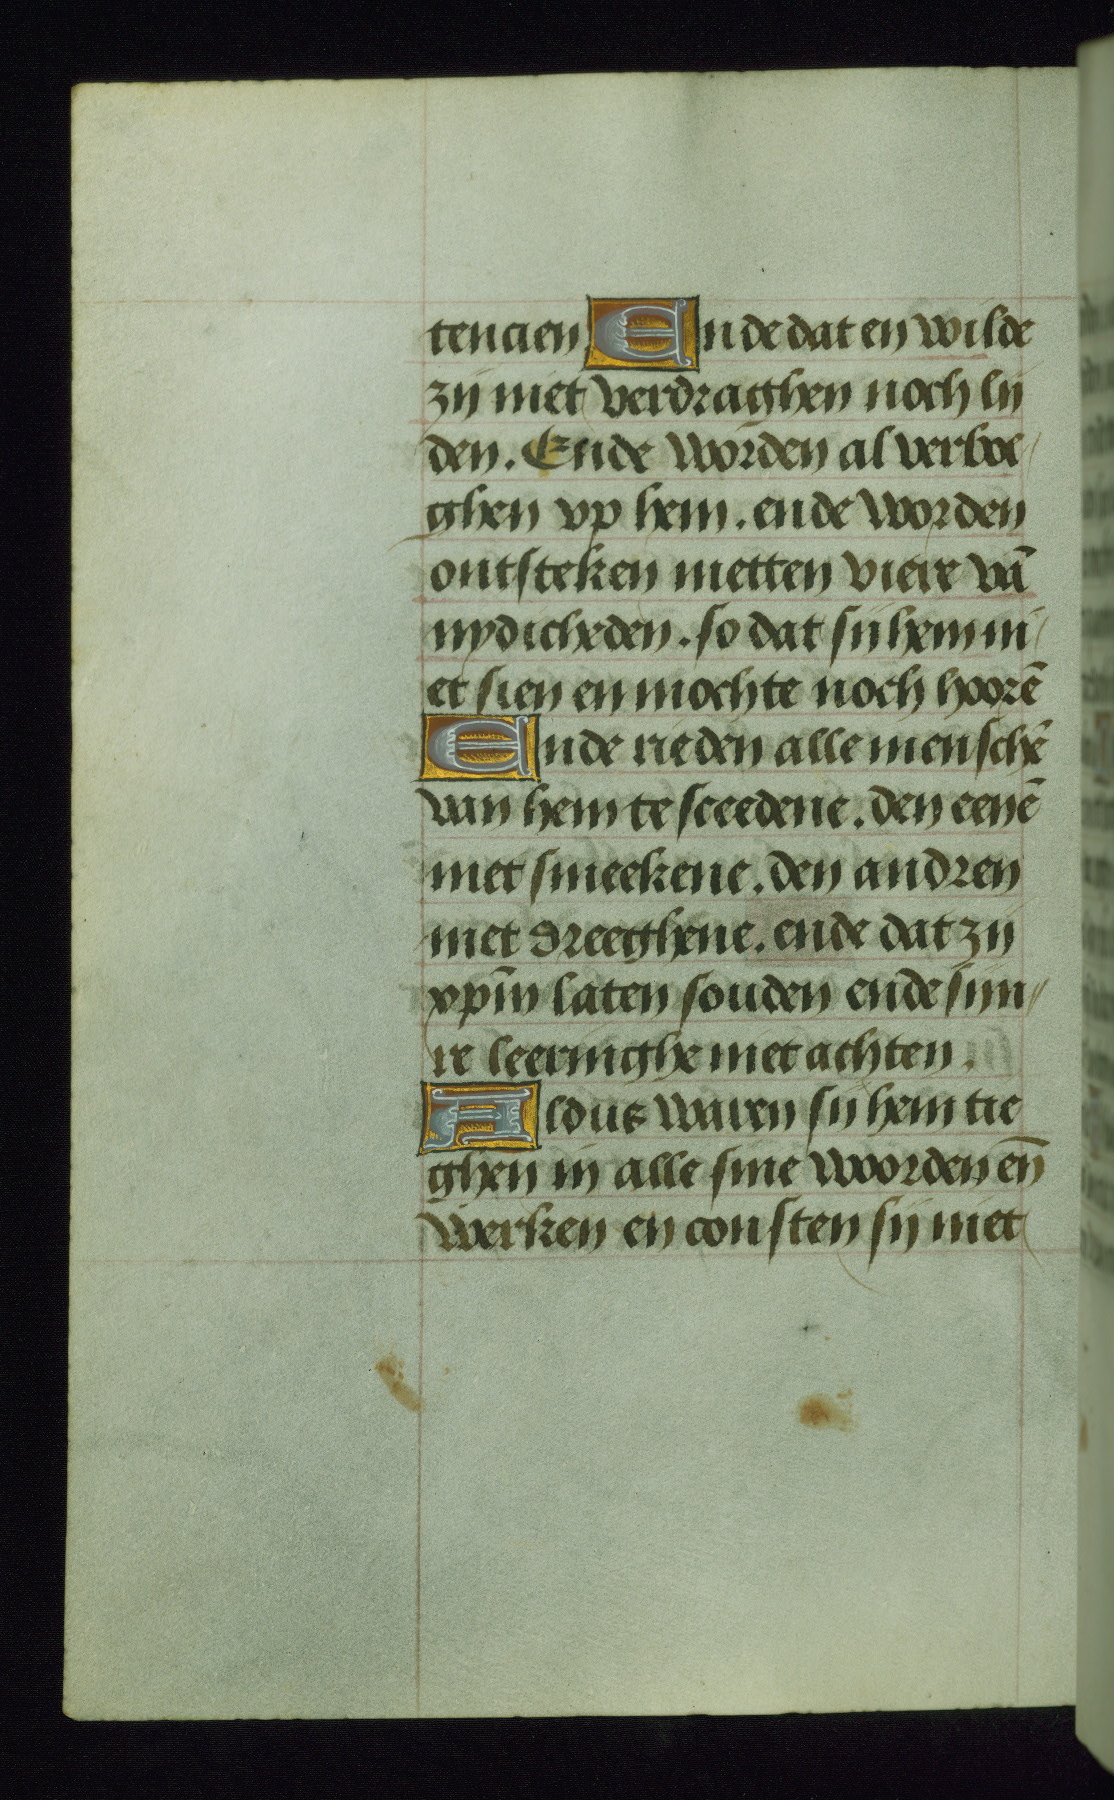 tencien Ende dat en wilde
zij niet verdraghen noch lij
den. Ende worden al verboe
ghen vp hem. ende worden
ontsteken metten viere vā
nydicheden. so dat sij hem ni
et sien en mochte noch hoorē
Ende rieden alle menschē
van hem te sceedene. den eenē
met smeekene. den andren
met dreeghene. ende dat zij
xp̄m laten souden ende sijn
re leeringhe niet achten.
Aldus waren sij hem tie
ghen in alle sine woorden eñ
werken en consten sij niet